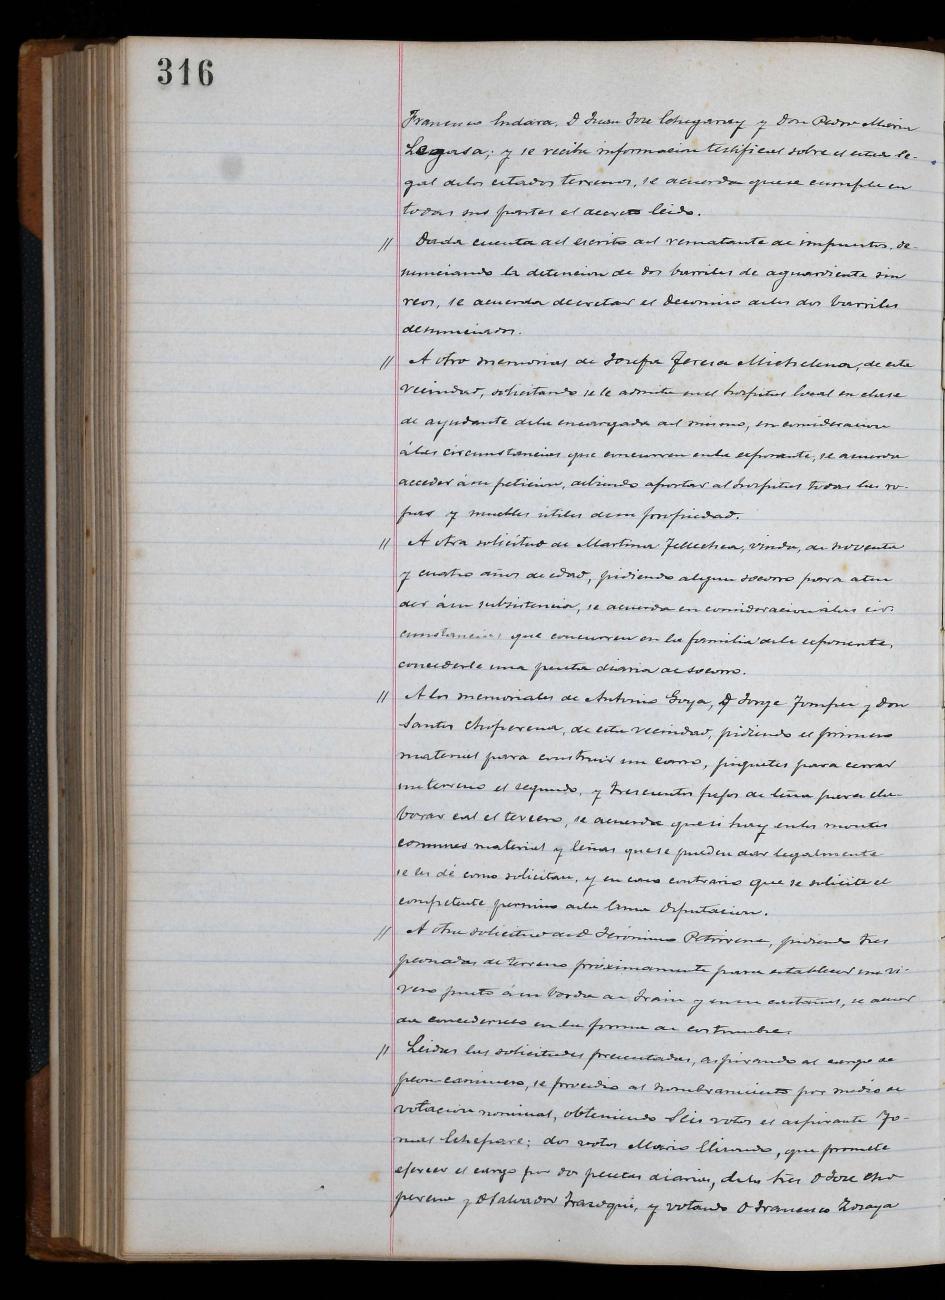 316
Francisco Indara, D Juan José Echegaray y Don Pedro María
Legasa; y se recibe informacion testifical sobre el estado le-
gal de los citados terrenos, se acuerda que se cumpla en
todas sus partes el decreto leido.
// Dada cuenta del escrito del rematante de impuestos, de-
nunciando la detencion de dos barriles de aguardiente sin
reos, se acuerda decretar el decomiso de los dos barriles
denunciados.
// A otro memorial de Josefa Teresa Michelena, de esta
vecindad, solicitando se le admita en el hospital local en clase
de ayudante de la encargada del mismo, en consideracion
á las circunstancias que concurren en la esponente, se acuerda
acceder á su peticion, debiendo aportar al hospital todas las ro-
pas y muebles utiles de su propiedad.
// A otra solicitud de Martina Tellechea, viuda, de noventa
y cuatro años de edad, pidiendo algun socorro para aten
der á su subsistencia, se acuerda en consideracion á las cir-
cunstancias que concurren en la familia de la esponente,
concederle una peseta diaria de socorro.
// A los memoriales de Antonio Goya, D Jorge y Don
Santos Choperena, de esta vecindad, pidiendo el primero
material para construir un carro, piquetes para cerrar
un terreno el segundo, y trescientas de leña para ela-
borar cal el tercero, se acuerda que si hay en los montes
comunes material y leñas que se puedan dar legalmente
se les dé como solicitan, y en caso contrario que se solicite el
competente permiso de la Diputacion.
// A otra solicitud de D Jerónimo Petrirena, pidiendo tres
peonadas de terreno próximamente para establecer un vi-
vero junto á su borda de y en su castañal, se acuer
da concederselo en la forma de costumbre.
// Leidas las solicitudes presentadas, aspirando al cargo de
peon caminero, se procedio al nombramiento por medio de
votacion nominal, obteniendo seis votos el aspirante To-
mas Echepare; dos votos Mario Elizondo, que promete
ejercer el cargo por dos pesetas diarias, de los tres D José Cho
perena y D Salvador Irazoqui, y votando D Francisco Zozaya